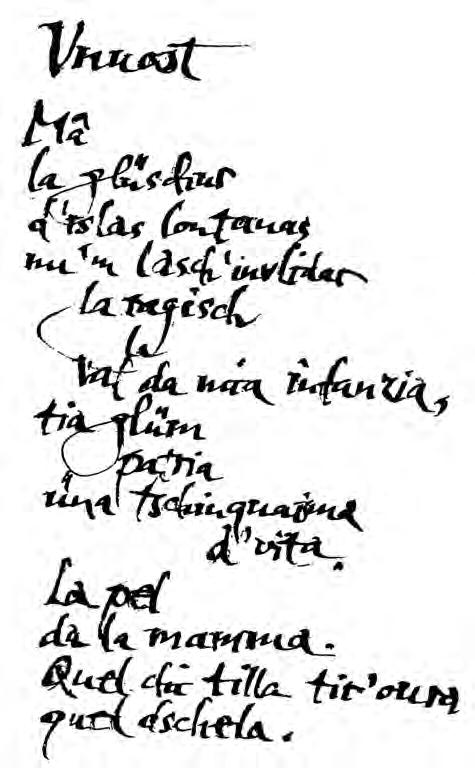 Vnuost
Mâ
la glüschur
d'islas lontanas
nu'm lasch'invlidar
la ragisch
la
val da mia infanzia,
tia glüm
patria
üna tschinquaisma
d'vita.
La pel
da la mamma.
Quel chi tilla tir'oura
quel dschela.